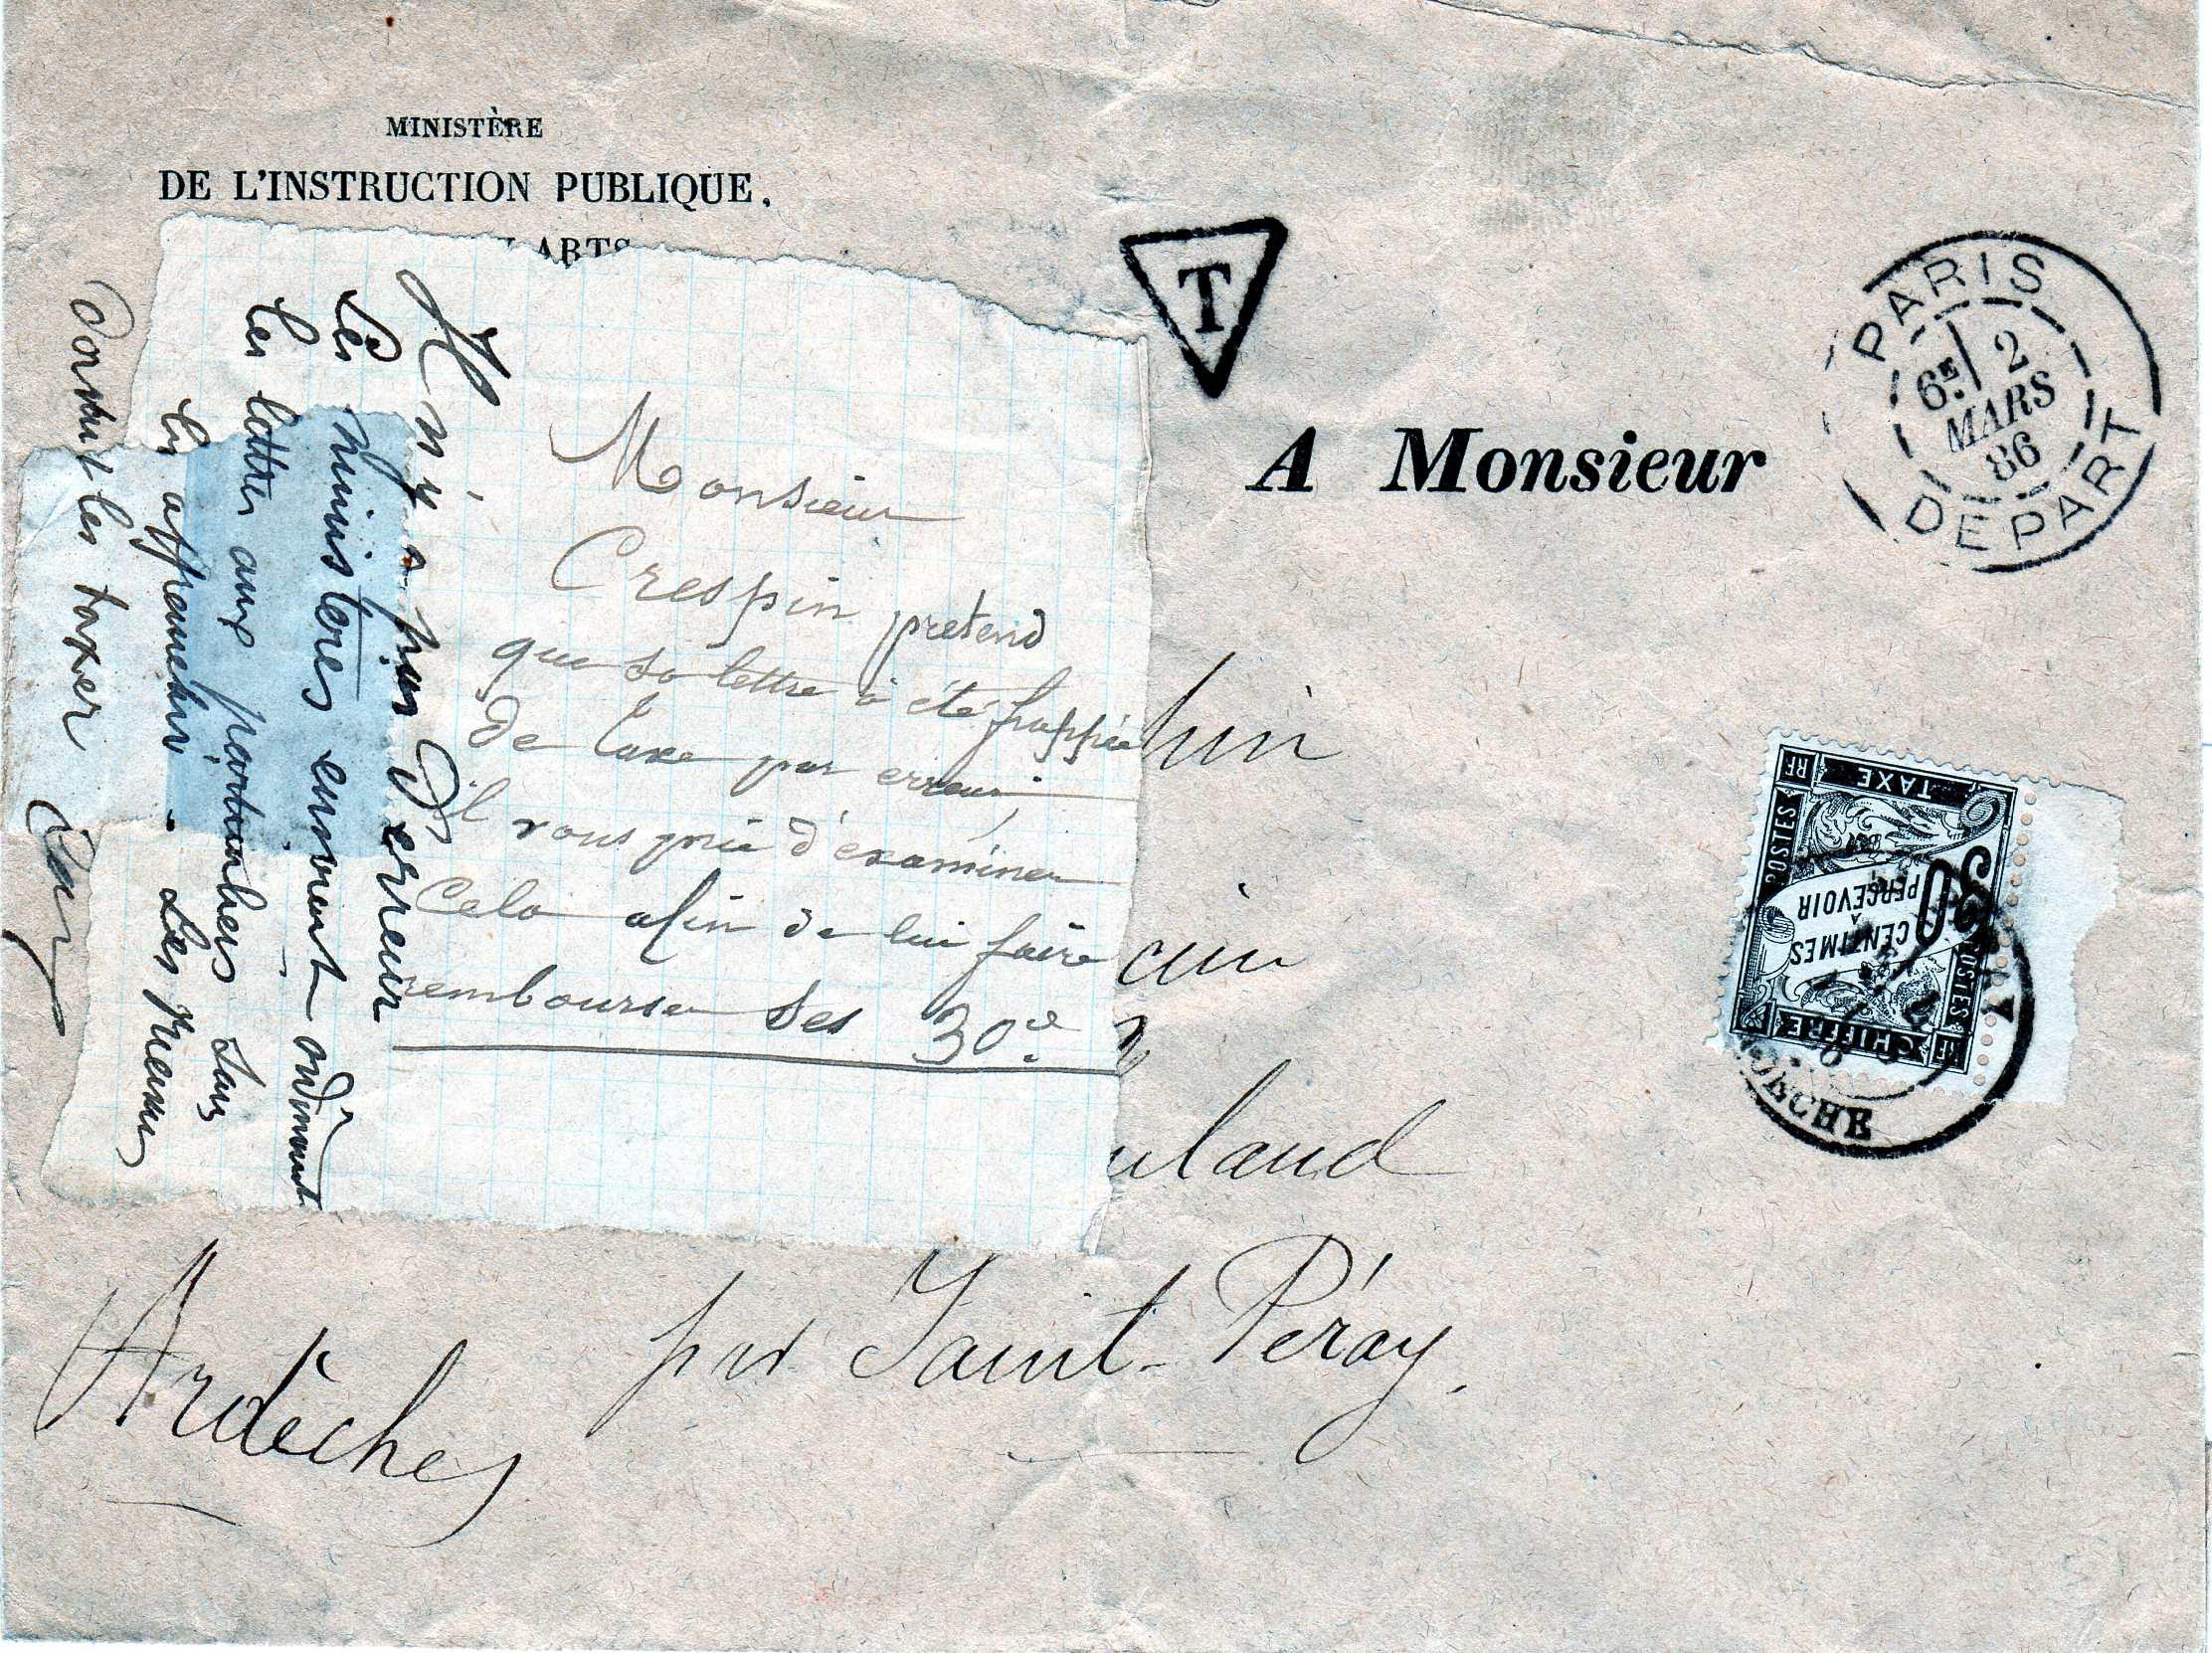 MINISTÈRE
DE L'INSTRUCTION PUBLIQUE,
ARTS
T
PARIS
6E 2
MARS
86
DEPART
A Monsieur
Monsieur
Crespin prétend
que sa lettre à été frappée
de taxe par erreur,
il vous prie d'éxaminer
Cela afin de lui faire
rembourser ses 30c.
Il n'y a pas d'erreur
Les ministères envoient ordinairement
les lettres aux particuliers sans
les affranchir. Les Mêmes
doivent les taxer
cin
uland
par Saint-Péray.
Ardèche
CHIFFRE
TAXE
POSTES
POSTES
RF
RF
30
CENTIMES
A
PERCEVOIR
DÈCHE